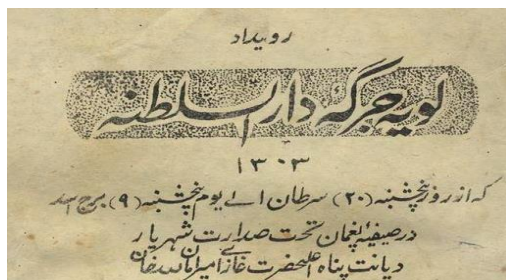 رویداد
لویه جرگه دار السلطنه
۱۳۰۳
که از روز پنجشنبه (۲۰) سرطان الے یوم پنچشنبه (۹) برج اسد
در صیفیۀ پغمان تحت صدارت شهریار
دیانت پناه اعلیحضرت غازی امیر امان الله خان